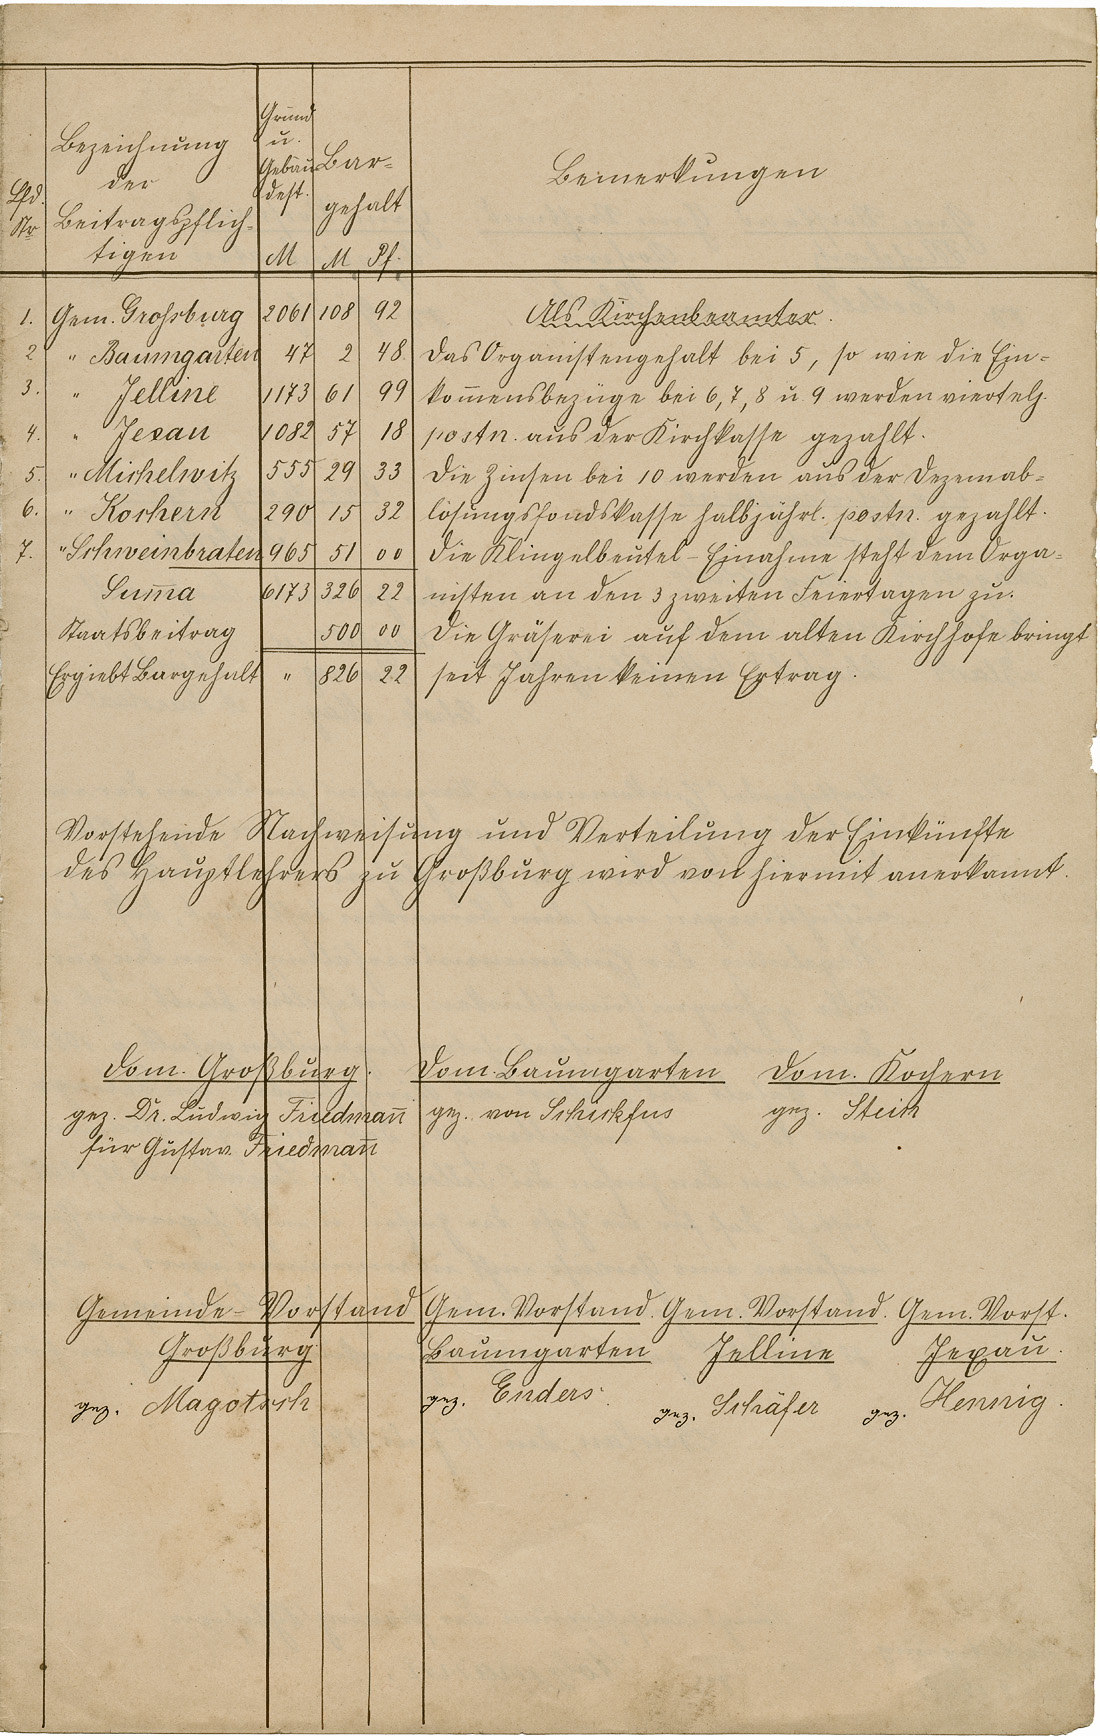 Lfd. Nr | Bezeichnung der Beitragspflich-tigen | Grund u. Gebäu dest. M | Bar-gehalt M Pf. | Bemerkungen
1. Gem. Grossburg 2061 108 92 Als Kirchenbeamter.
2 " Baumgarten 47 2 48 Das Organistengehalt bei 5, so wie die Ein-
3. " Jelline 1173 61 99 kom̅ensbezüge bei 6, 7, 8 u. 9 werden viertelj.
4. " Jexau 1082 57 18 postn. aus der Kirchkasse gezahlt.
5. " Michelwitz 555 29 33 Die Zinsen bei 10 werden aus der Dezemab-
6. " Kochern 290 15 32 lösungsfondskasse halbjährl. postn. gezahlt.
7. " Schweinbraten 965 51 00 Die Klingelbeutel-Einahme steht dem Orga-
Sum̅a 6173 326 22 nisten an den 3 zweiten Feiertagen zu.
Staatsbeitrag 500 00 Die Gräserei auf dem alten Kirchhofe bringt
Ergiebt Bargehalt " 826 22 seit Jahren keinen Ertrag.
Vorstehende Nachweisung und Verteilung der Einkünfte
des Hauptlehrers zu Großburg wird von hiermit anerkannt.
Dom. Großburg. Dom. Baumgarten Dom. Kochern
gez. Dr. Ludwig Friedman̅ gez. von Schickfus gez.
für Gustav Friedman̅
Gemeinde-Vorstand Gem. Vorstand. Gem. Vorstand. Gem. Vorst.
Großburg Baumgarten Jelline Jexau.
gez. Magotsch gez. Enders. gez. Schäfer gez. Hennig.